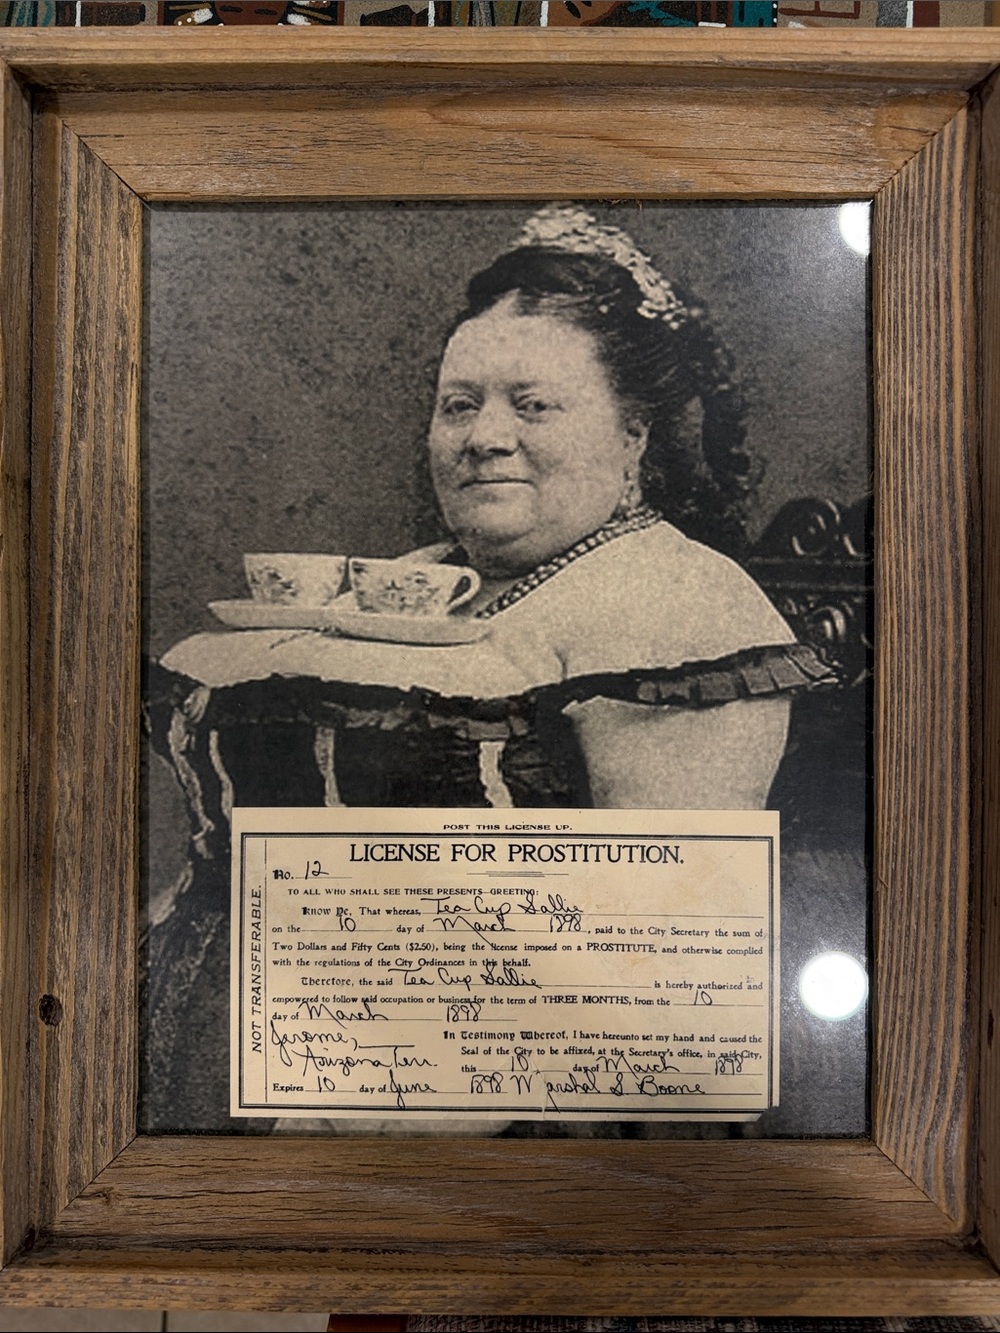 POST THIS LICENSE UP.
LICENSE FOR PROSTITUTION.
No. 12
TO ALL WHO SHALL SEE THESE PRESENTS—GREETING:
Know Ye, That whereas, Tea Cup Sallie
on the 10 day of March 1898, paid to the City Secretary the sum of
Two Dollars and Fifty Cents ($2.50), being the license imposed on a PROSTITUTE, and otherwise complied
with the regulations of the City Ordinances in this behalf.
Therefore, the said Tea Cup Sallie is hereby authorized and
empowered to follow said occupation or business for the term of THREE MONTHS, from the 10
day of March 1898
Jerome,
Arizona Terr.
In Testimony Whereof, I have hereunto set my hand and caused the
Seal of the City to be affixed, at the Secretary's office, in said City,
this 10 day of March 1898
Expires 10 day of June 1898 Marshal S Boone
NOT TRANSFERABLE.